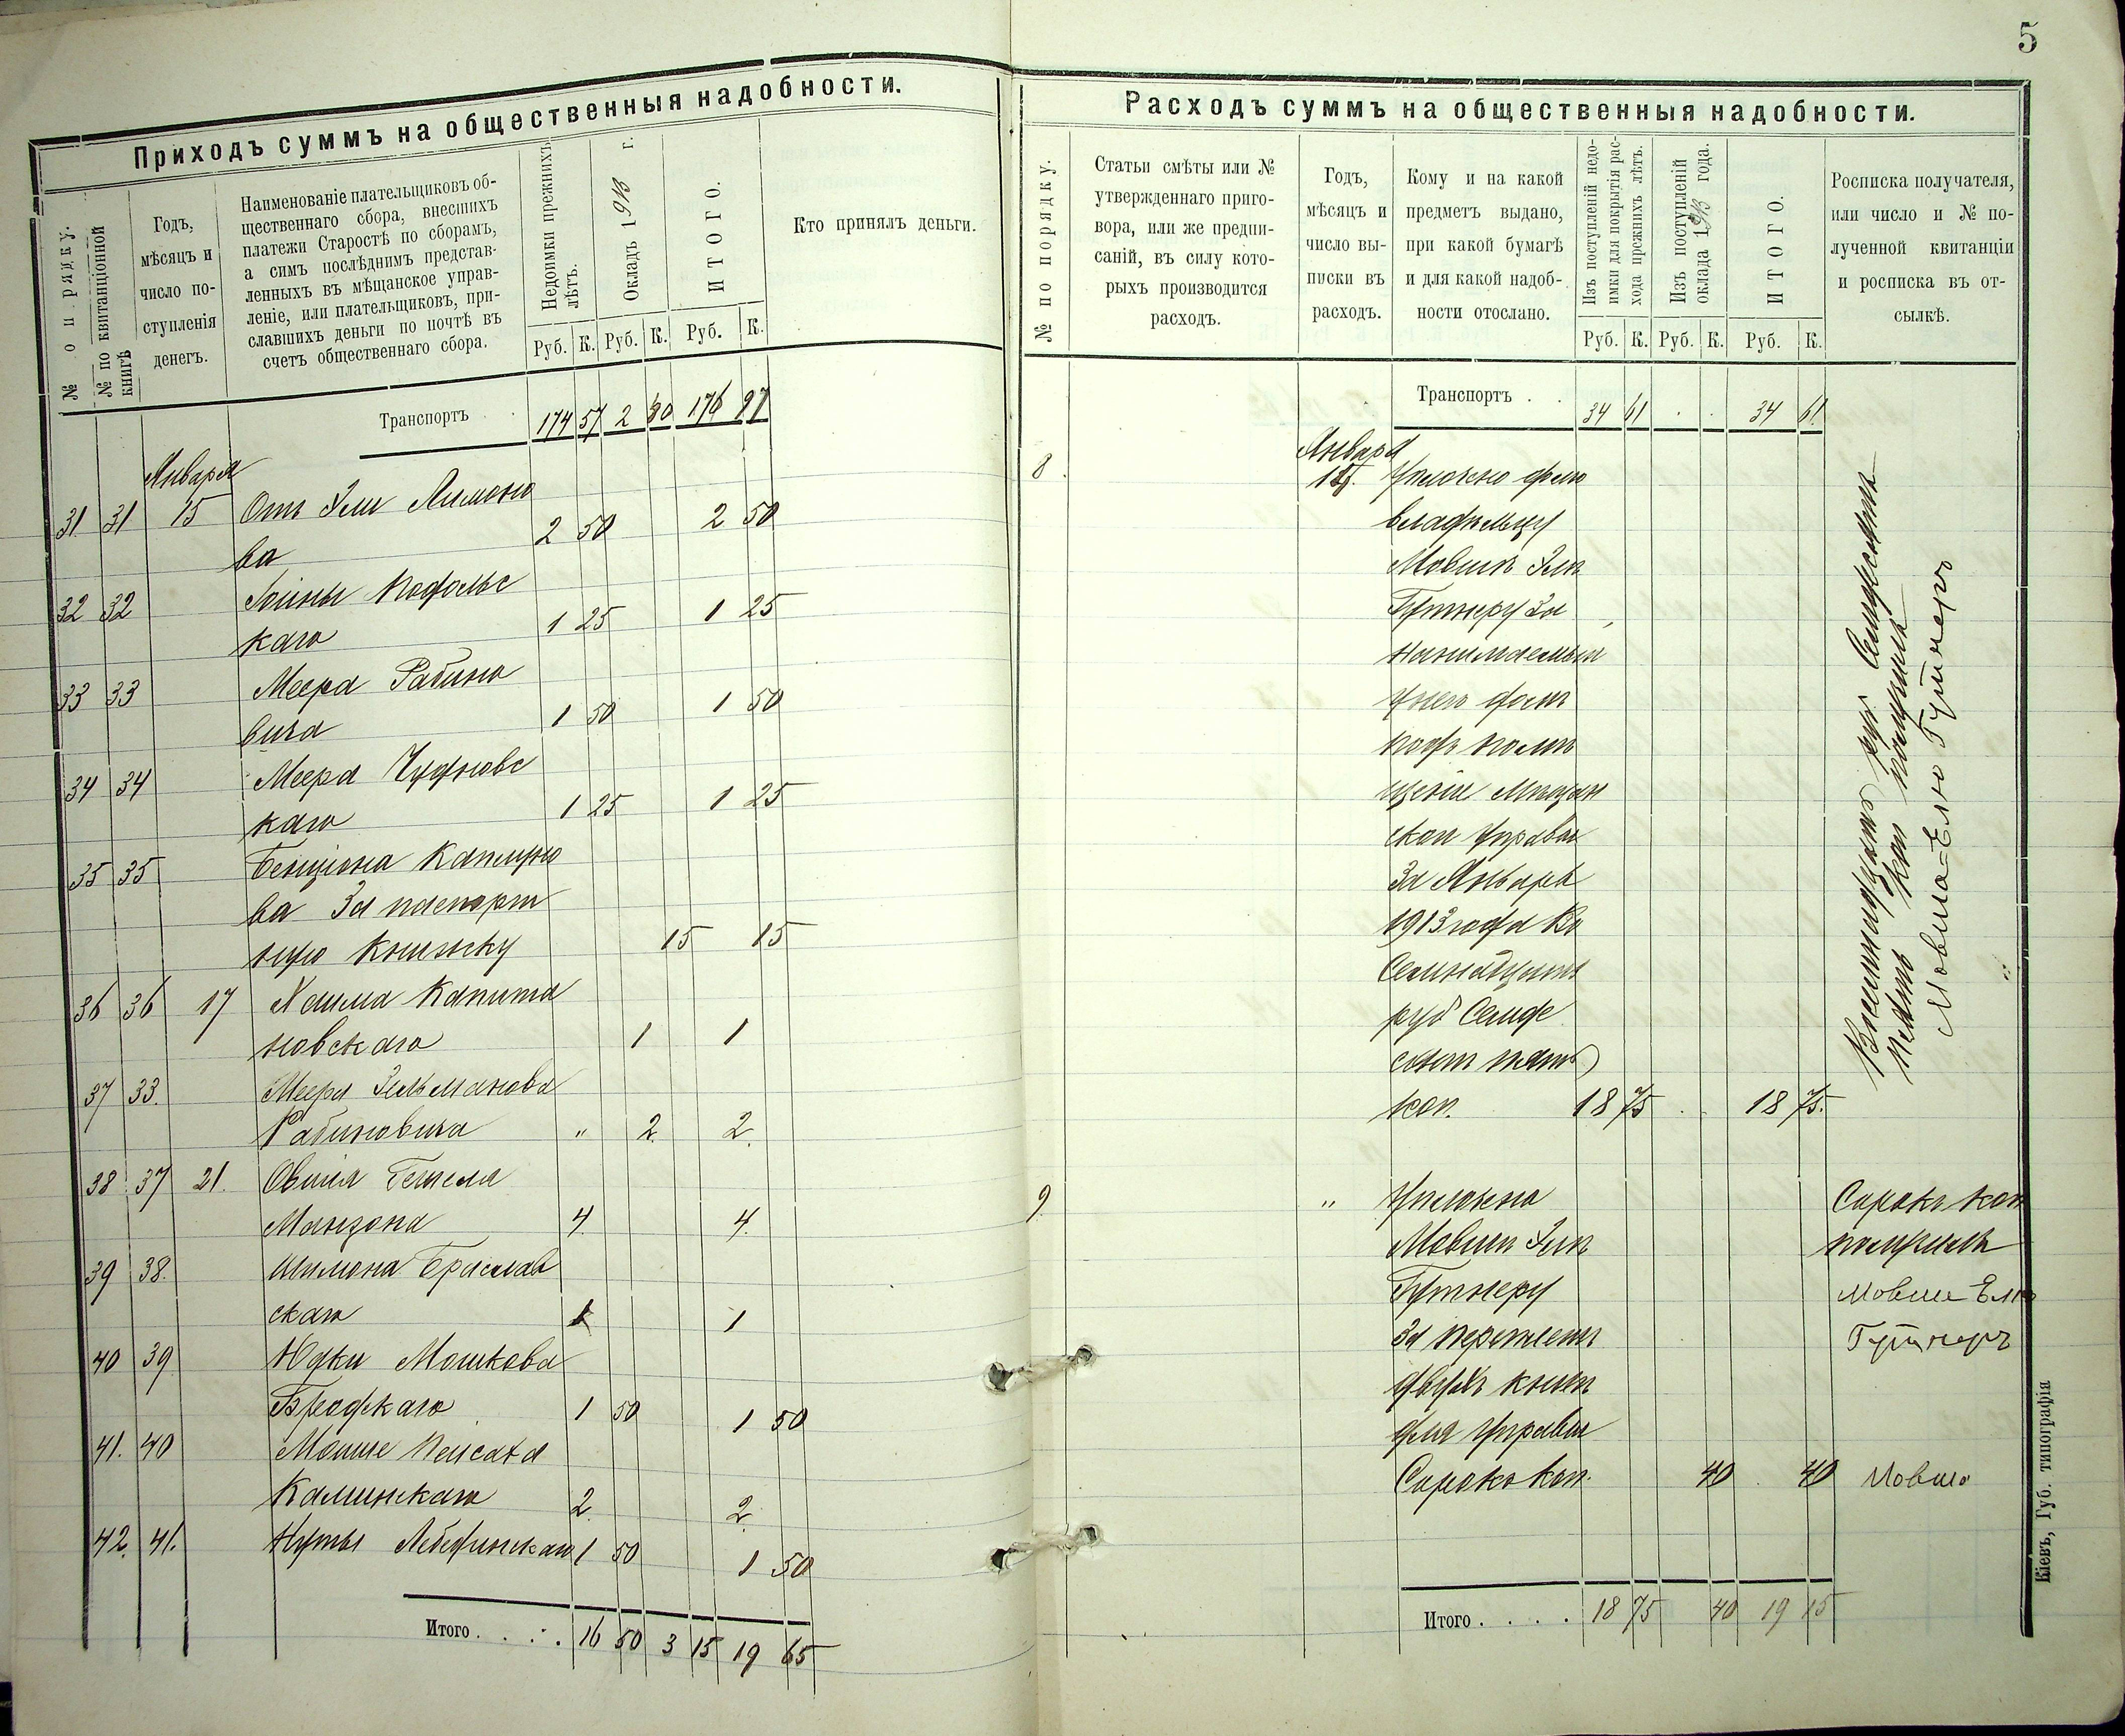 5
Приходъ суммъ на общественныя надобности.
№ по порядку.
№ по квитанціонной книгѣ
Годъ,
мѣсяцъ и
число по-
ступленія
денегъ.
Наименованіе плательщиковъ об-
щественнаго сбора, внесшихъ
платежи Старостѣ по сборамъ,
а симъ послѣднимъ представ-
ленныхъ въ мѣщанское управ-
леніе, или плательщиковъ, при-
славшихъ деньги по почтѣ въ
счетъ общественнаго сбора.
Недоимки прежнихъ
лѣтъ.
Окладъ 1913 г.
ИТОГО.
Кто принялъ деньги.
Руб. К. Руб. К. Руб. К.
Транспортъ 174 57 2 30 176 87
Января
31 31 15 Отъ Эли Лимоно
ва 2 50 2 50
32 32 Іоины Подольс
каго 1 25 1 25
33 33 Меера Рабино
вича 1 50 1 50
34 34 Меера Чудновс
каго 1 25 1 25
35 35 Бенціона
ва За паспорт
ную книжку 15 15
36 36 17 Хаима Капита
новскаго 1 1
37 33. Меера Зельманова
Рабиновича " 2. 2.
38 37 21. Овшія Гешеля
Манзона 4. 4.
39 38. Шимона Браслав
скаго 1 1
40 39 Юдки Мошкова
Бродскаго 1 50 1 50
41. 40 Моише Пейсаха
Калинскаго 2. 2.
42. 41. Нуты Лебединскаго 1 50 1 50
Итого . . . . 16 50 3 15 19 65
Расходъ суммъ на общественныя надобности.
№ по порядку.
Статьи смѣты или №
утвержденнаго приго-
вора, или же предпи-
саній, въ силу кото-
рыхъ производится
расходъ.
Годъ,
мѣсяцъ и
число вы-
писки въ
расходъ.
Кому и на какой
предметъ выдано,
при какой бумагѣ
и для какой надоб-
ности отослано.
Изъ поступленій недо-
имки для покрытія рас-
хода прежнихъ лѣтъ.
Изъ поступленій
оклада 1913 года.
ИТОГО.
Росписка получателя,
или число и № по-
лученной квитанціи
и росписка въ от-
сылкѣ.
Руб. К. Руб. К. Руб. К.
Транспортъ . . 34 61 . . 34 61.
Января
8. Уплочено домо
владѣльцу
Мовшѣ Элѣ
Гутнеру За
нанимаемый
у него домъ
подъ помѣ
щеніе Мѣщан
ской Управы
За Январь
1913 года Во
семнадцать
руб Семде
сятъ пять
коп. 18 75 . . 18 75.
Восемнадцать руб. Семдесятъ
пять коп получилъ
Мовша=Елю Гутнеръ
9. " Уплочено
Мовшѣ Элѣ
Гутнеру
За переплетъ
двухъ книгъ
для Управы
Сорокъ коп. 40 . 40
Сорокъ коп
получилъ
Мовше Елю
Гутнеръ
Мовша
Итого . . . . 18 75 40 19 15
Кіевъ, Губ. типографія